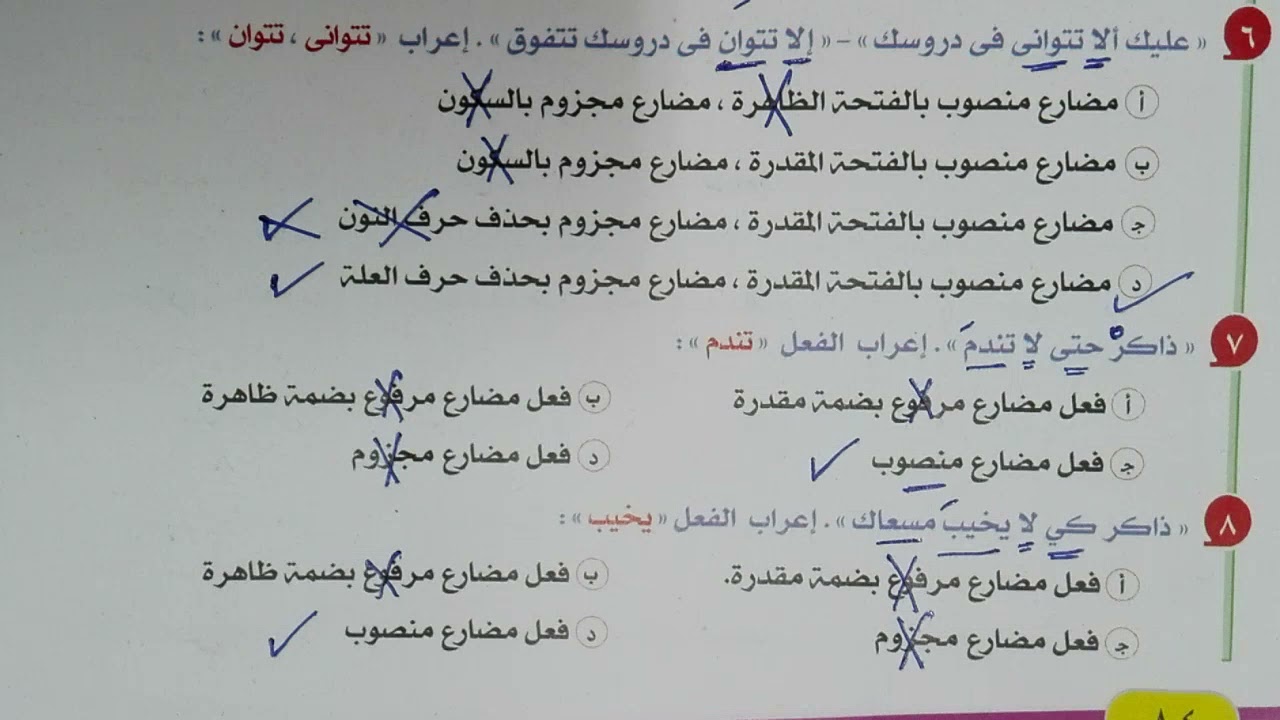 ٦ « عليك ألا تتوانى فى دروسك » – « إلا تتوان فى دروسك تتفوق » . إعراب « تتوانى ، تتوان » :
أ مضارع منصوب بالفتحة الظاهرة ، مضارع مجزوم بالسكون
ب مضارع منصوب بالفتحة المقدرة ، مضارع مجزوم بالسكون
ج مضارع منصوب بالفتحة المقدرة ، مضارع مجزوم بحذف حرف النون
د مضارع منصوب بالفتحة المقدرة ، مضارع مجزوم بحذف حرف العلة
٧ « ذاكرْ حتى لا تندمَ » . إعراب الفعل « تندم » :
أ فعل مضارع مرفوع بضمة مقدرة ب فعل مضارع مرفوع بضمة ظاهرة
ج فعل مضارع منصوب د فعل مضارع مجزوم
٨ « ذاكر كي لا يخيبَ مسعاك » . إعراب الفعل « يخيب » :
أ فعل مضارع مرفوع بضمة مقدرة. ب فعل مضارع مرفوع بضمة ظاهرة
ج فعل مضارع مجزوم د فعل مضارع منصوب